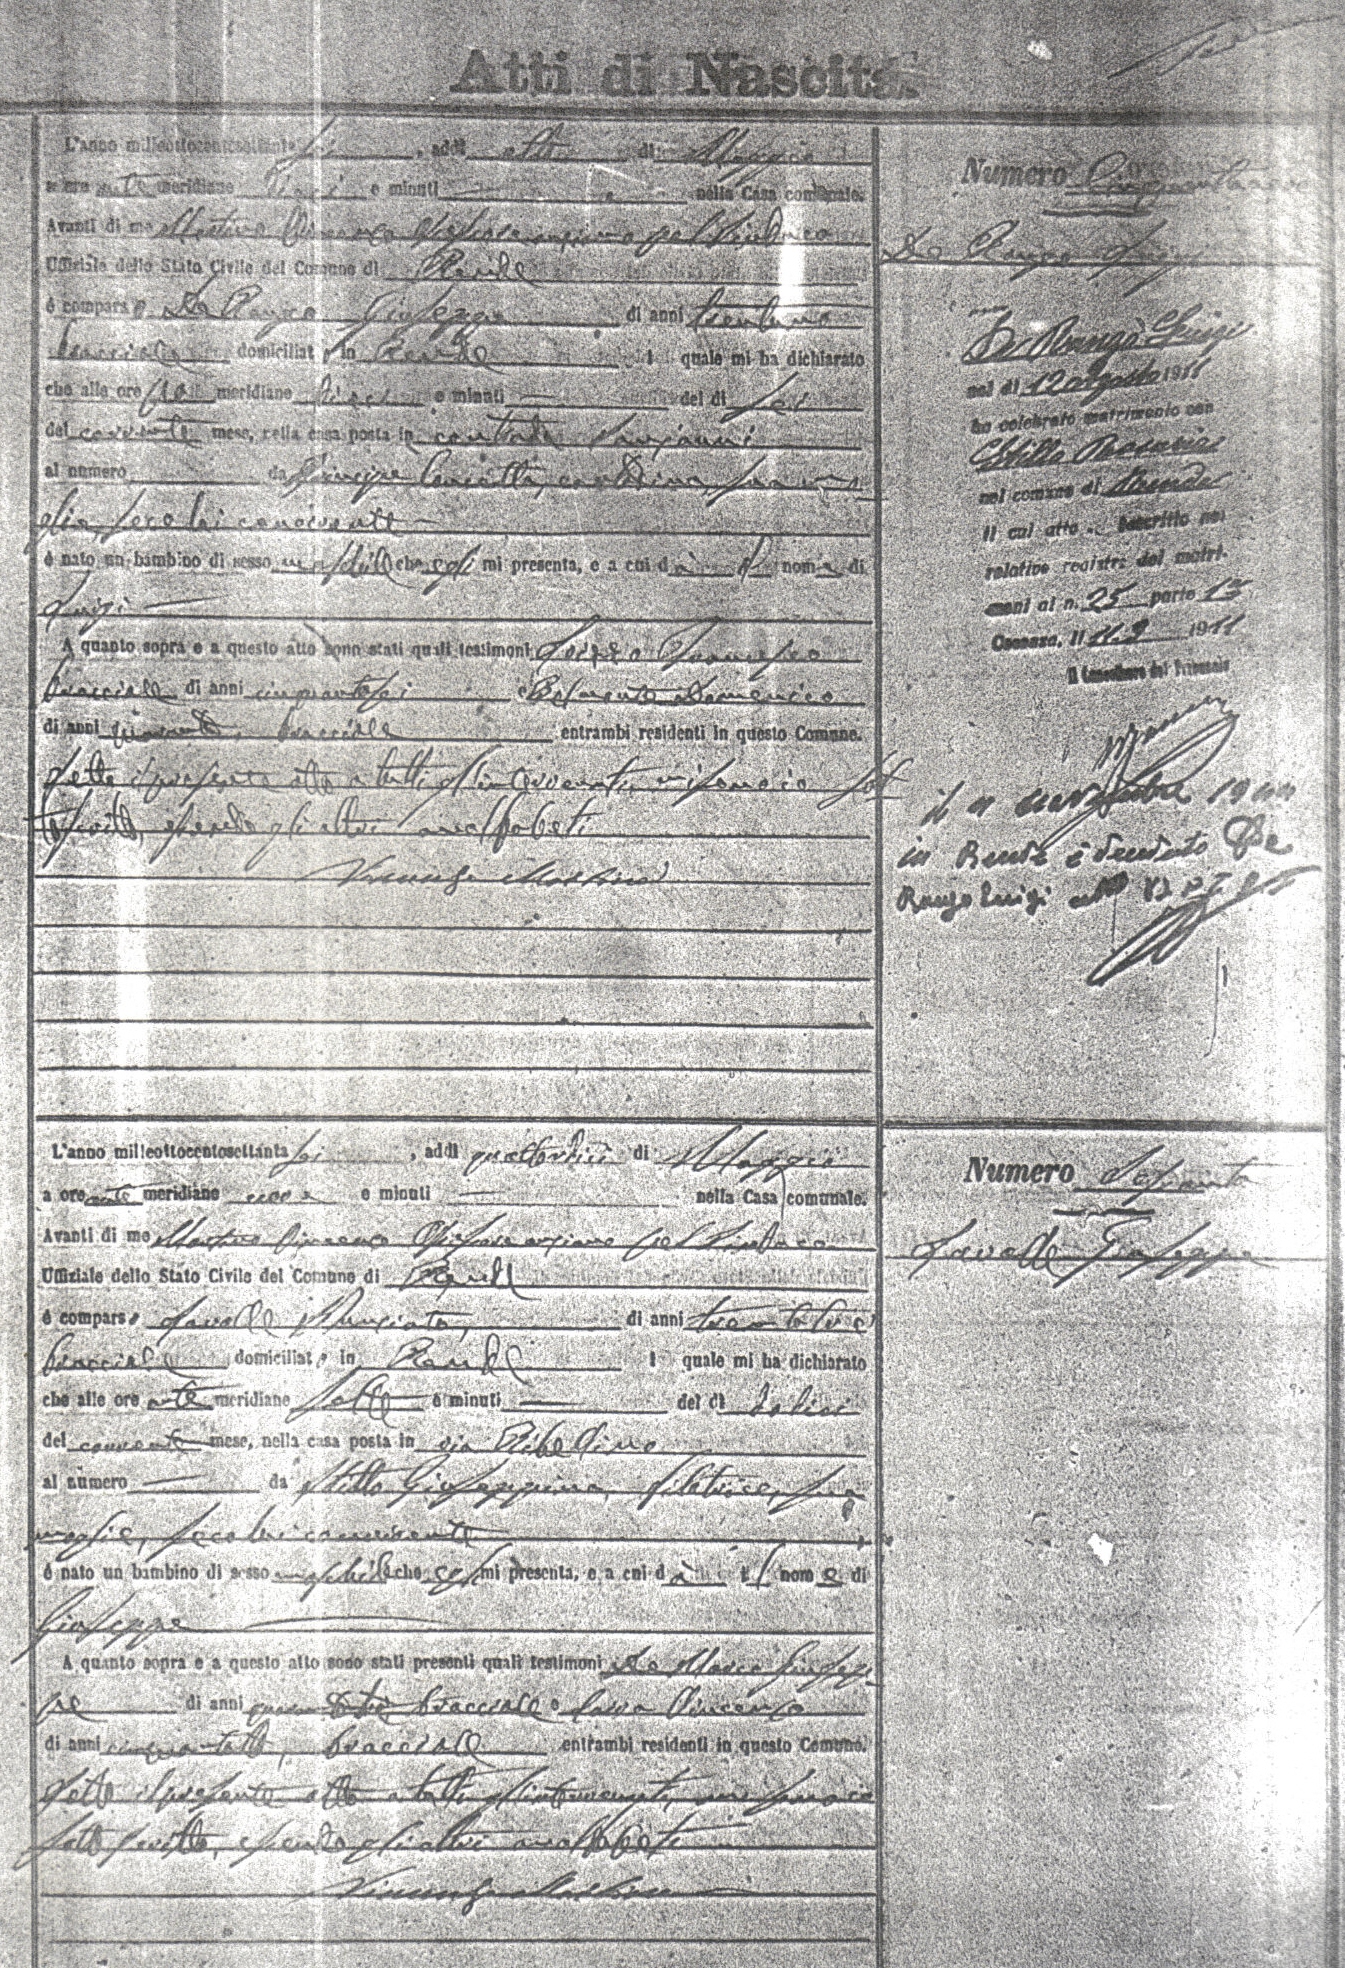 Atti di Nascita
L'anno milleottocentosettanta sei, addì otto di Maggio
a ore ante meridiane dieci e minuti — nella Casa comunale.
Avanti di me Martino Vincenzo Assessore anziano pel Sindaco
Uffiziale dello Stato Civile del Comune di Rende
è comparso De Rango Giuseppe di anni trentuno
bracciale domiciliato in Rende il quale mi ha dichiarato
che alle ore meridiane dieci e minuti — del dì sei
del corrente mese, nella casa posta in contrada
al numero da Principe Concetta, contadina, sua mo
glie, seco lui convivente —
è nato un bambino di sesso maschile che egli mi presenta, e a cui dà il nome di
Luigi —
A quanto sopra e a questo atto sono stati quali testimoni Francesco
bracciale di anni cinquantasei e Belmonte Domenico
di anni quaranta, bracciale entrambi residenti in questo Comune.
Letto il presente atto a tutti gl'intervenuti, mi sono io sot
toscritto, essendo gli altri analfabeti
Vincenzo Martino
Numero Cinquantanove
De Rango Luigi
De Rango Luigi
nel dì 12 Agosto 1911
ha celebrato matrimonio con
Rosaria
nel comune di Rende
il cui atto è inscritto nel
relativo registro dei matri-
moni al n. 25 parte 1a
Cosenza, il 11.9 1911
Il Cancelliere del Tribunale
in Rende è deceduto De
Rango Luigi
L'anno milleottocentosettanta sei, addì quattordici di Maggio
a ore ante meridiane nove e minuti — nella Casa comunale.
Avanti di me Martino Vincenzo Assessore anziano pel Sindaco
Uffiziale dello Stato Civile del Comune di Rende
è comparso Lavalle Nunziato, di anni trentatre
bracciale domiciliato in Rende il quale mi ha dichiarato
che alle ore ante meridiane sette e minuti — del dì dodici
del corrente mese, nella casa posta in via
al numero — da Stillo Giuseppina, filatrice, sua
moglie, seco lui convivente
è nato un bambino di sesso maschile che egli mi presenta, e a cui dà il nome di
Giuseppe —
A quanto sopra e a questo atto sono stati presenti quali testimoni De Marco Giusep
pe di anni bracciale e Vincenzo
di anni cinquantotto, bracciale entrambi residenti in questo Comune.
Letto il presente atto a tutti gl'intervenuti, mi sono io
sottoscritto, essendo gli altri analfabeti
Vincenzo Martino
Numero Sessanta
Lavalle Giuseppe